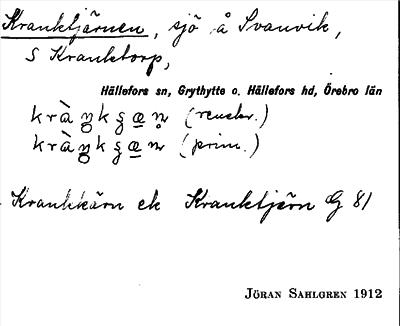 Kranktjärnen, sjö å Svanvik,
S Kranktorp,
Hällefors sn, Grythytte o. Hällefors hd, Örebro län
(renskr.)
(prim.)
Krankkärn ek Kranktjern G 81
JÖRAN SAHLGREN 1912